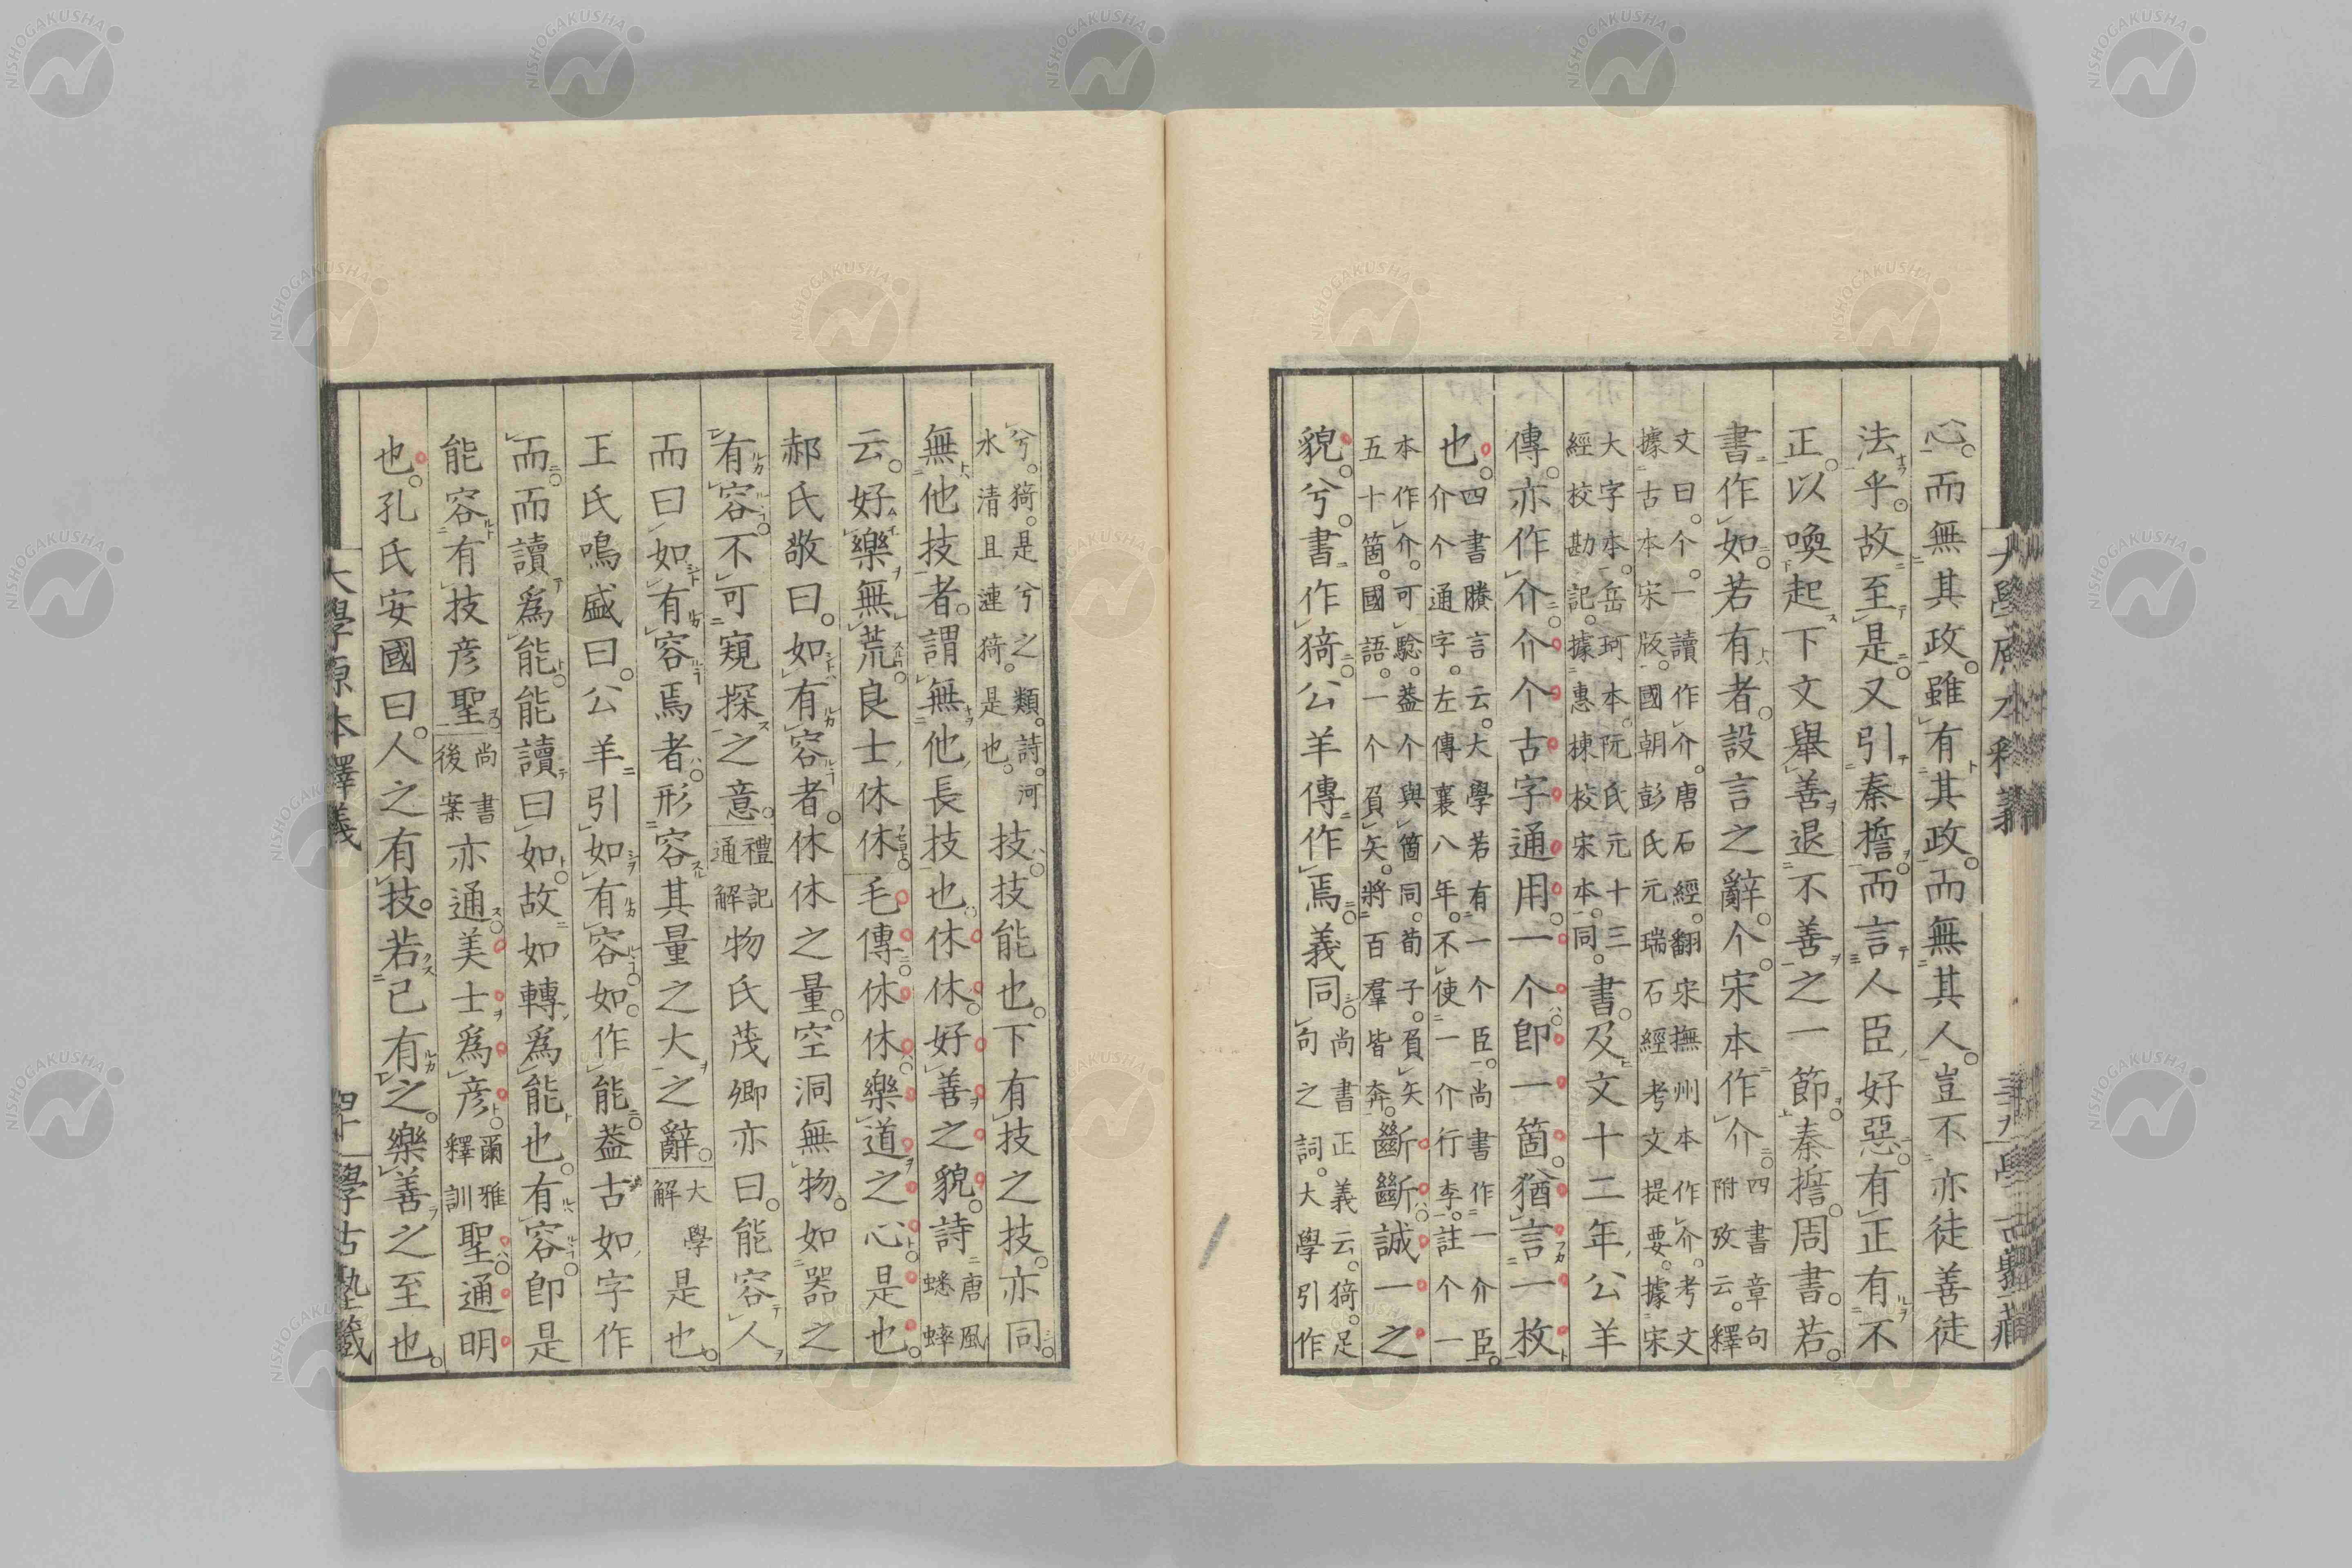 心。而無其政。雖有其政。而無其人。豈不亦徒善徒
法乎。故至是又引秦擔。而言人臣好惡。有正有不
正。以喚起下文舉善退不善之一節。秦擔。周書。若。
書作如。若有者。設言之辭。个。宋本作介。四書章句附攷云。釋
文曰。个。一讀作介。唐石經。翻宋撫州本作介。考文據古本宋版。國朝彭氏元瑞石經考文提要。據宋
大字本。岳珂本。阮氏元十三經校勘記。據惠棟校宋本。同。書。及文十二年公羊
傳。亦作介。介个古字通用。一个即一箇。猶言一枚
也。四書賸言云。大學若有一个臣。尚書作一介臣。介个通字。左傳襄八年。不使一介行李。註个一
本作介。可騐。葢个與箇同。荀子。負矢五十箇。國語。一个負矢。將百羣皆奔。斷斷誠一之
貌。兮。書作猗。公羊傳作焉。義同。尚書正義云。猗。足句之詞。大學引作
兮。猗。是兮之類。詩。河水清且漣猗。是也。技。技能也。下有技之技。亦同。
無他技者。謂無他長技也。休休。好善之貌。詩唐風蟋蟀
云。好樂無荒。良士休休。毛傳。休休。樂道之心。是也。
郝氏敬曰。如有容者。休休之量。空洞無物。如器之
有容。不可窺探之意。禮記通解物氏茂卿亦曰。能容人
而曰如有容焉者。形容其量之大之辭。大學解是也。
王氏鳴盛曰。公羊引如有容。如作能。葢古如字作
而。而讀爲能。能讀曰如。故如轉爲能也。有容。即是
能容有技彦聖。尚書後案亦通。美士爲彦。爾雅釋訓聖。通明
也。孔氏安國曰。人之有技。若己有之。樂善之至也。
大學原本釋義
四十
學古塾藏
大學原本釋義
三九
NISHOGAKUSHA